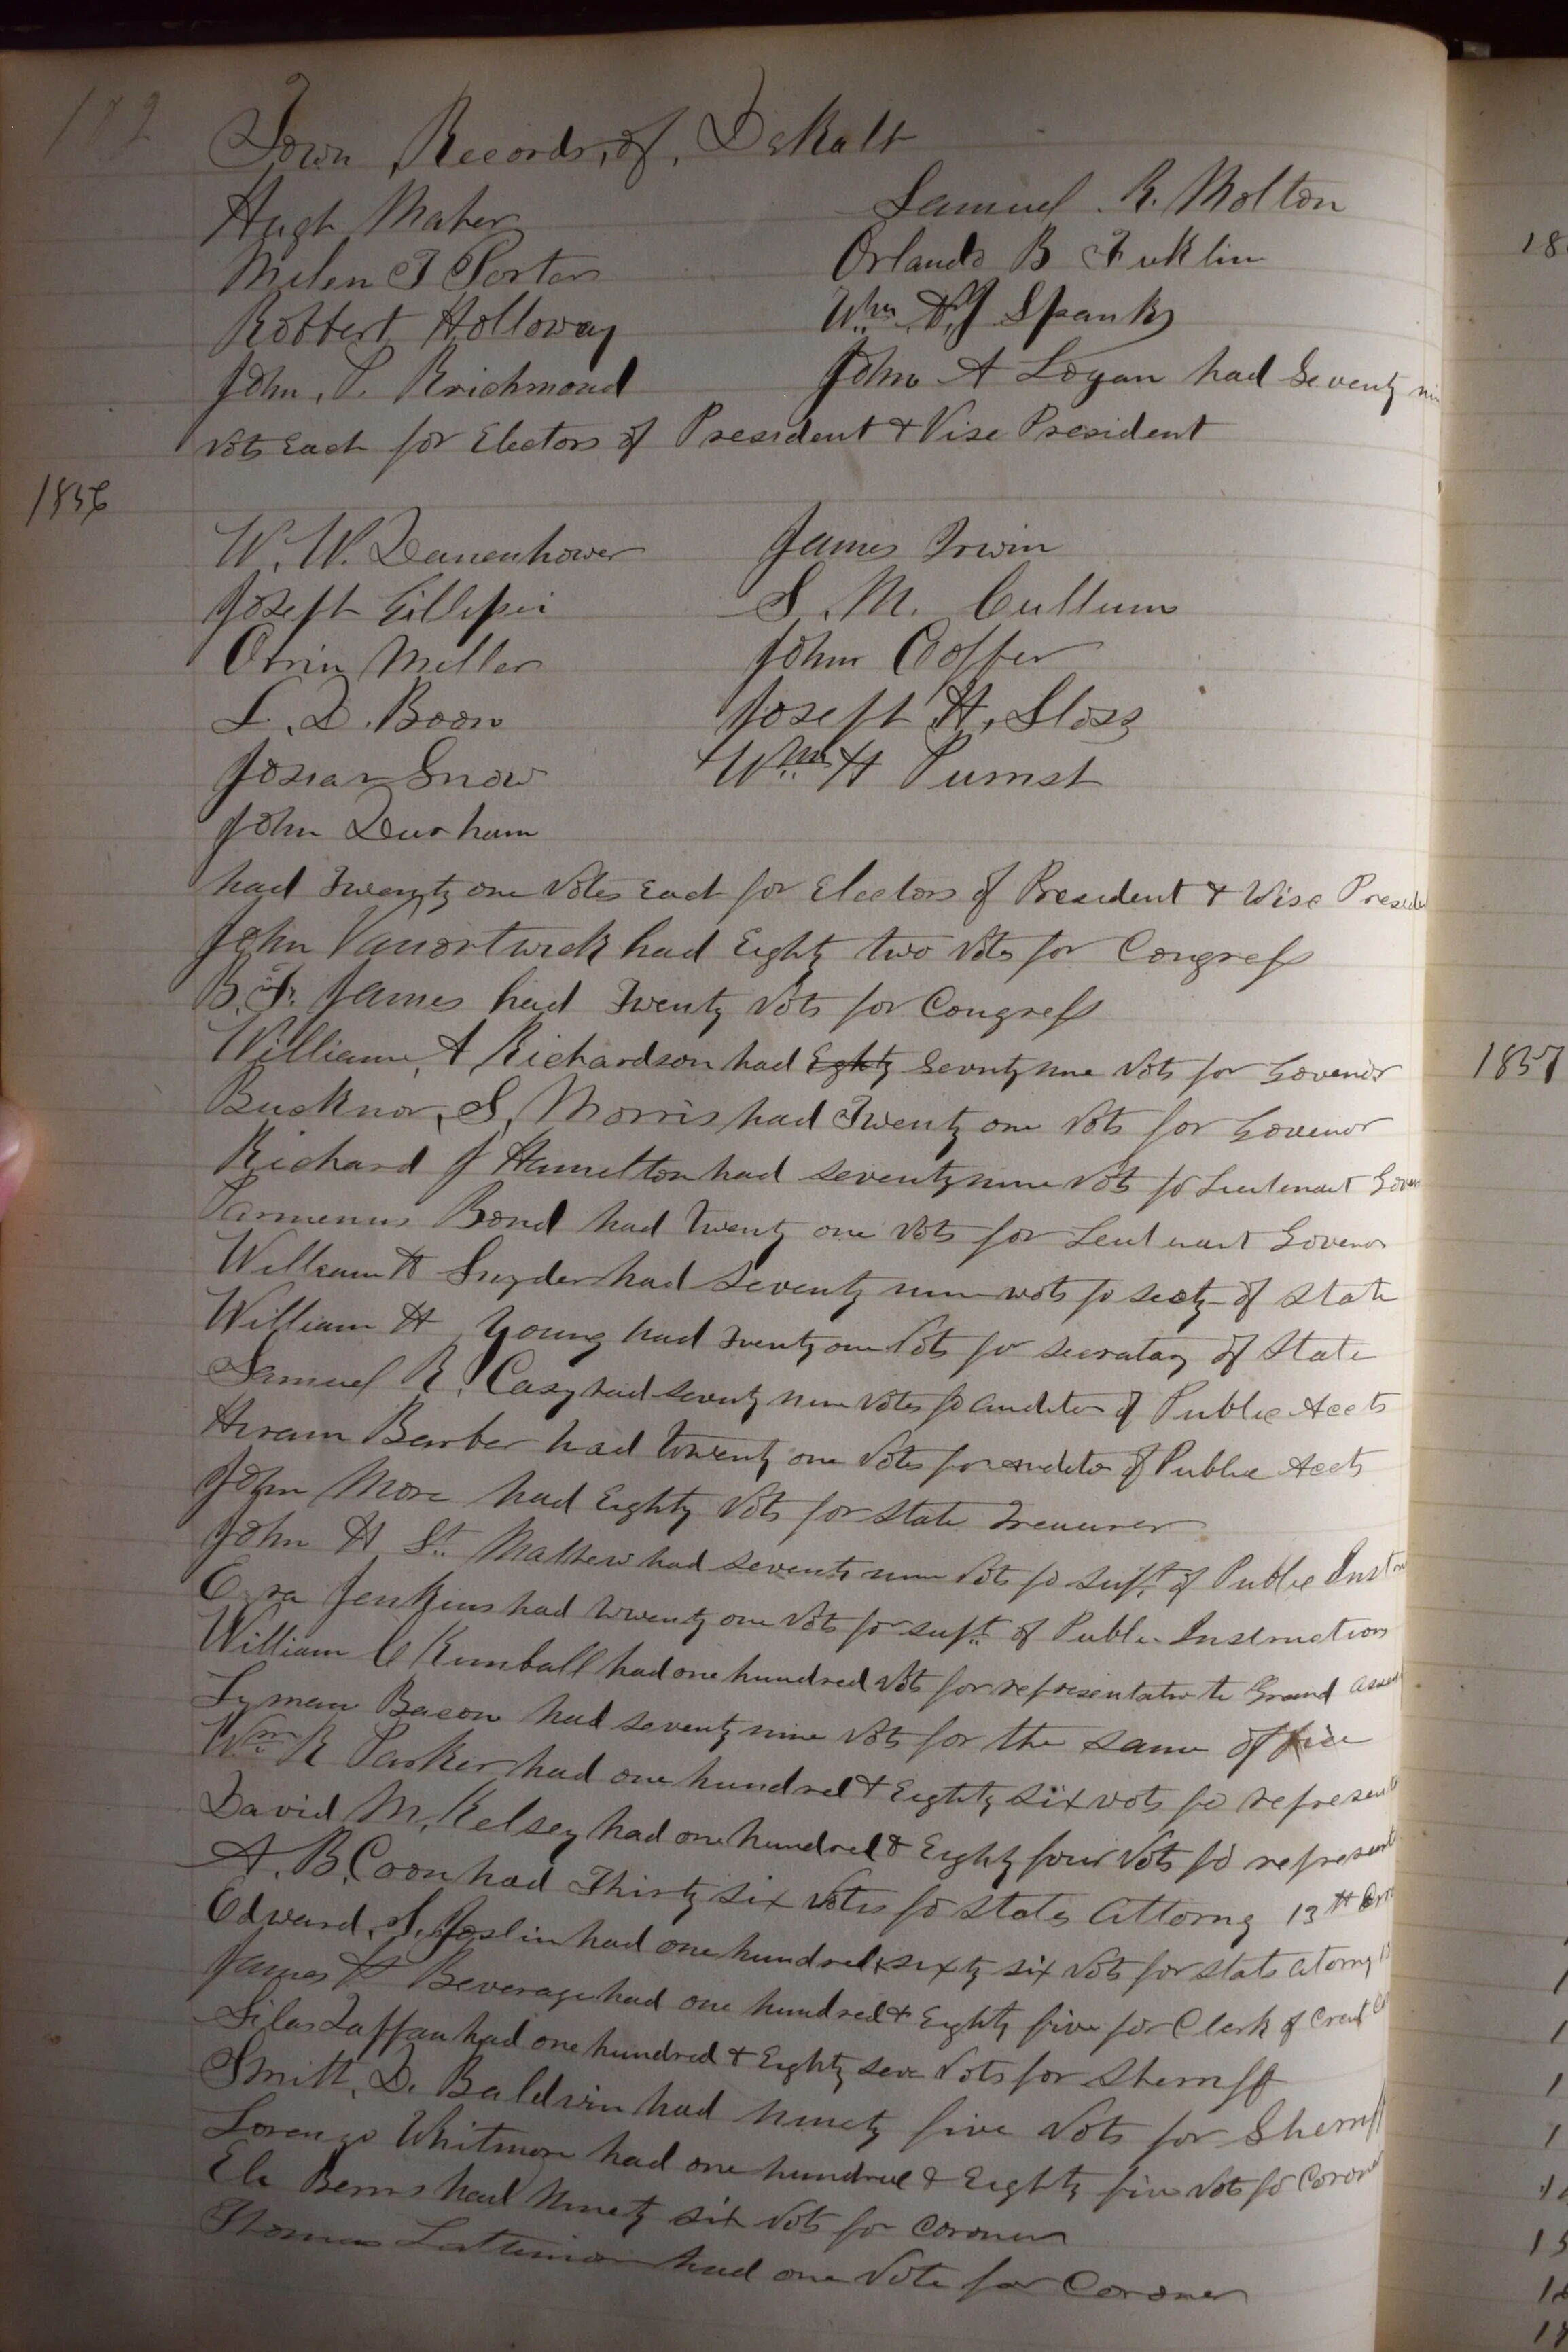 192
Town Records, of, DeKalb
Hugh Maher
Samuel R. Molton
Milen T Porter
Orlando B Fuklin
Robbert Holloway
Wm A J Spanks
John, P. Krichmond
John A Logan had Seventy ni
vots Each for Electors of President & Vise President
1856
W. W. Danenhower
James Irwin
Joseph Gillipsi
S. M. Cullum
Orrin Miller
John Coffer
L. D. Boon
Joseph H, Sloss
Josiah Snow
Wm H Purnst
John Durham
had Twenty one Votes Each for Electors of President & Wise Preside
John Vanortwick had Eighty two Vots for Congress
B. F. James had Twenty Vots for Congress
William, A Richardson had Eghty Seventy nine Vots for Govenor
Bucknor, S, Morris had Twenty one Vots for Govenor
Richard J Hamelton had seventy nine Vots fo Lieutenant Gover
Parmenus Bond had twenty one Vots for Leutenant Govenor
William H Snyder had Seventy nine vots fo secty of State
William H Young had Twenty one Vots for secratary of State
Samuel R. Casy had seventy nine Votes fo auditor of Public Accts
Hiram Barber had twenty one Votes for auditor of Public Accts
John More had Eighty Vots for State Treasurer
John H St. Mathew had seventy nine Vots fo supt. of Public Inst
Ezra Jenkins had twenty one Vots for supt. of Public Instruction
William C Kimball had one hundred Vots for representative to Grand assem
Lyman Bacon had seventy nine Vots for the same office
Wm R Parker had one hundred & Eighty six vots fo represent
David M. Kelsey had one hundred & Eighty four Vots fo represent
A. B. Coon had Thirty six Votes fo States Attorny 13th
Edward, S. Joslin had one hundred & sixty six Vots for stats atorny 13
James H Beverage had one hundred & Eighty five for Clerk of Crcut
Silas Taffan had one hundred & Eighty seve Vots for Sherriff
Smith, D. Baldwin had ninety five Vots for Sherriff
Lorenzo Whitmore had one hundred & Eighty five Vots fo Coroner
Ele Bemis had Ninety six Vots for Coroner
Thomas Lattimor had one Vote for Coroner
18
1857